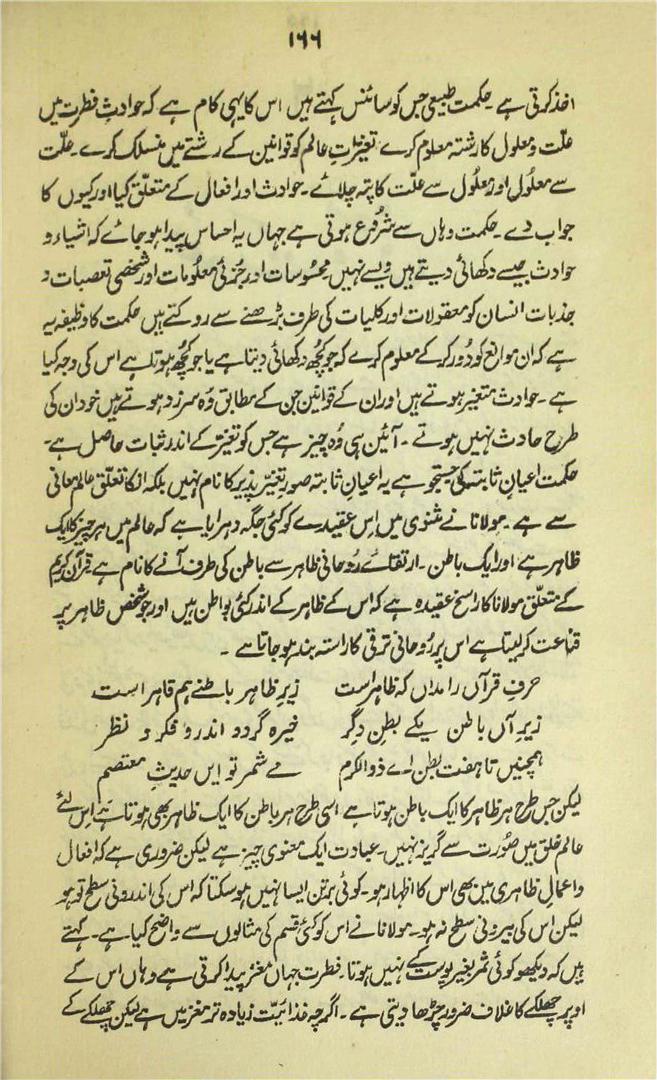 ۱۶۶
اخذ کرتی ہے ۔ حکمت طبیعی جس کو سائنس کہتے ہیں اس کا یہی کام ہے کہ حوادثِ فطرت میں
علّت و معلول کا رشتہ معلوم کرے تغیراتِ عالم کو قوانین کے رشتے میں منسلک کرے ۔ علّت
سے معلُول اور معلُول سے علّت کا پتہ چلائے ۔ حوادث اور افعال کے متعلّق کیا اور کیوں کا
جواب دے ۔ حکمت وہاں سے شرُوع ہوتی ہے جہاں یہ احساس پیدا ہو جائے کہ اشیاء و
حوادث جیسے دکھائی دیتے ہیں ویسے نہیں محسُوسات اور جُزئی معلُومات اور شخصی تعصبات و
جذبات انسان کو معقولات اور کلیات کی طرف بڑھنے سے روکتے ہیں حکمت کا وظیفہ یہ
ہے کہ ان موانع کو دُور کر کے معلوم کرے کہ جو کچُھ دکھائی دیتا ہے یا جو کچُھ ہوتا ہے اس کی وجہ کیا
ہے ۔ حوادث متغیر ہوتے ہیں اور ان کے قوانین جن کے مطابق وُہ سرزد ہوتے ہیں خود ان کی
طرح حادث نہیں ہوتے ۔ آئین ہی وُہ چیز ہے جس کو تغیّر کے اندر ثبات حاصل ہے۔
حکمت اعیانِ ثابتہ کی جستجو ہے یہ اعیانِ ثابتہ صورِ تغیّر پذیر کا نام نہیں بلکہ انکا تعلّق عالم معانی
سے ہے ۔ مولانا نے مثنوی میں اِس عقیدے کو کئی جگہ دہرایا ہے کہ عالم میں ہر چیز کا ایک
ظاہر ہے اور ایک باطن ۔ ارتقائے رُوحانی ظاہر سے باطن کی طرف آنے کا نام ہے قرآن کریم
کے متعلّق مولانا کا راسخ عقیدہ ہے کہ اس کے ظاہر کے اندر کئی بواطن ہیں اور جو شخص ظاہر پر
قناعت کر لیتا ہے اس پر رُوحانی ترقی کا راستہ بند ہو جاتا ہے ۔
حرفِ قرآں را مداں کہ ظاہر است زیرِ ظاہر باطنے ہم قاہر است
زیرِ آں باطن یکے بطنِ دِگر خیرہ گردد اندرو فکر و نظر
ہمچنیں تا ہفت بطن اے ذوالکرم مے شمر تو ایں حدیثِ معتصم
لیکن جس طرح ہر ظاہر کا ایک باطن ہوتا ہے اسی طرح ہر باطن کا ایک ظاہر بھی ہوتا ہے اِس لئے
عالمِ خلق میں صُورت سے گریز نہیں ۔ عبادت ایک معنوی چیز ہے لیکن ضروری ہے کہ افعال
و اعمالِ ظاہری میں بھی اس کا اظہار ہو ۔ کوئی برتن ایسا نہیں ہو سکتا کہ اس کی اندرونی سطح تو ہو
لیکن اس کی بیرونی سطح نہ ہو ۔ مولانا نے اس کو کئی قسم کی مثالوں سے واضح کیا ہے ۔ کہتے
ہیں کہ دیکھو کوئی ثمر بغیر پوست کے نہیں ہوتا ۔ فطرت جہاں مغز پیدا کرتی ہے وہاں اس کے
اوپر چھلکے کا غلاف ضرور چڑھا دیتی ہے ۔ اگرچہ غذائیّت زیادہ تر مغز میں ہے لیکن چھلکے کے